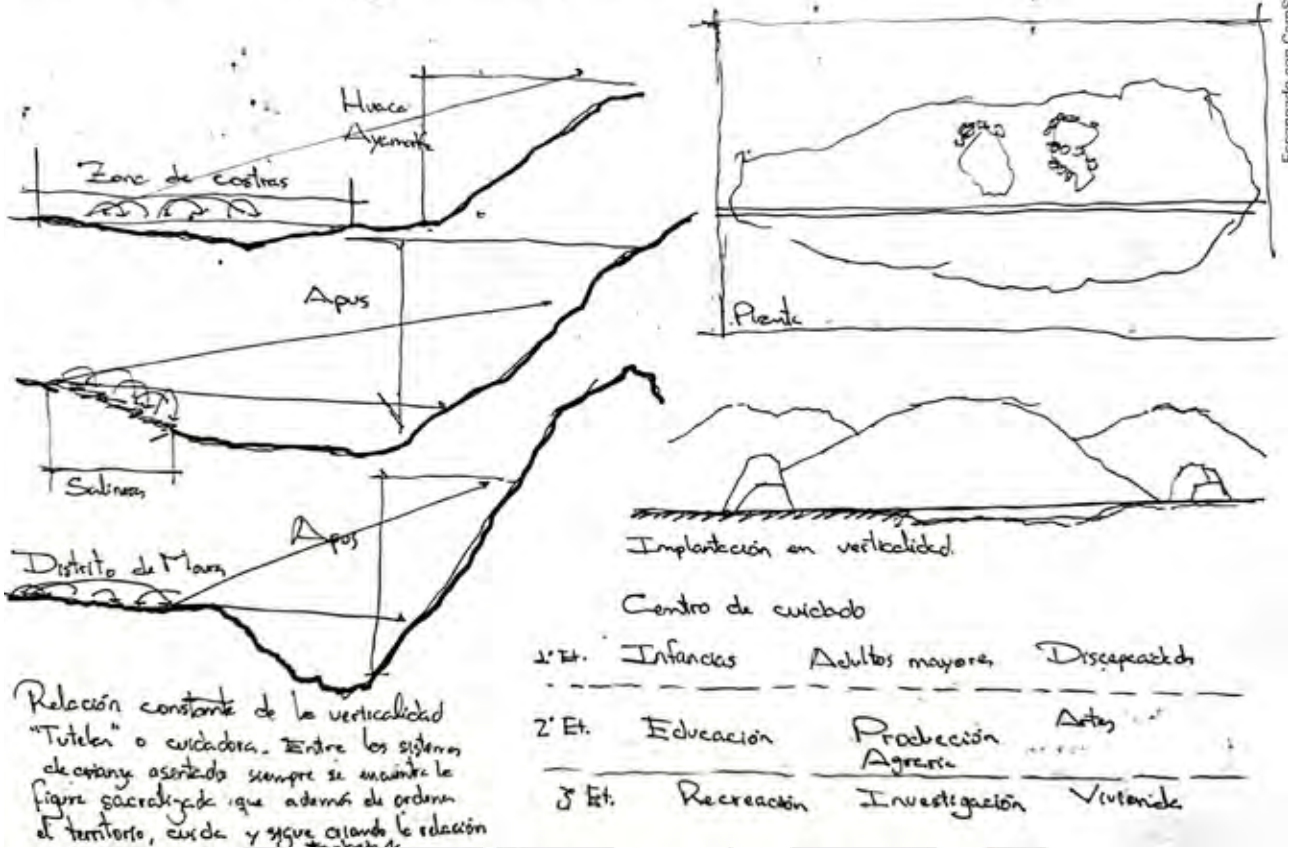 Huaca
Zona de costras
Apus
Salineras
Apus
Distrito de Maras
Relación constante de la verticalidad
"Tutelar" o cuidadora. Entre los sistemas
de crianza asentada siempre se encuentra la
figura sacralizada que además de ordenar
el territorio, cuida y sigue criando la relación
Planta
Implantación en verticalidad.
Centro de cuidado
1° Et. Infancias Adultos mayores
2° Et. Educación Producción Agraria Artes
3° Et. Recreación Investigación Vivienda